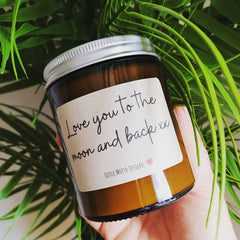 Love you to the
moon and back xx
LITTLE MUTTI DESIGNS